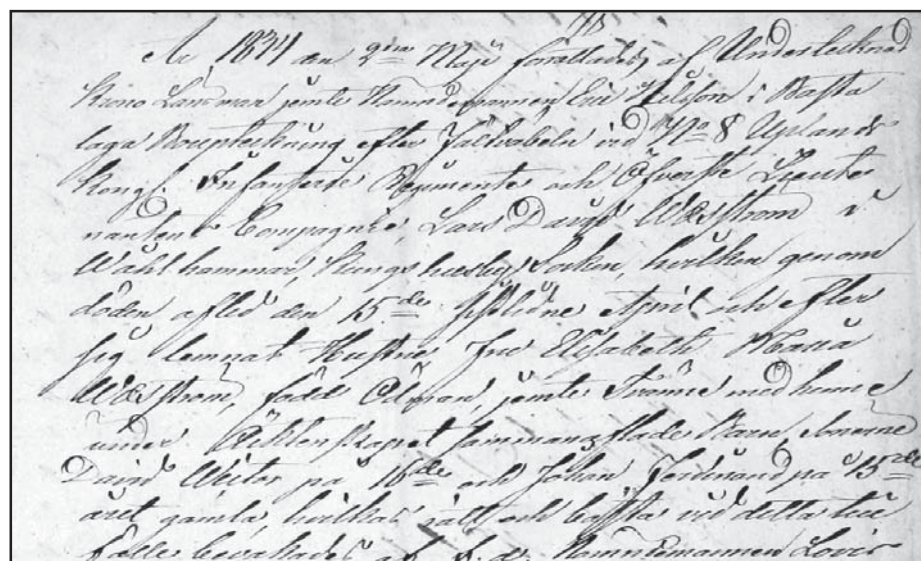 År 1834 den 9de Maji förrättades af Undertecknad
Krono Länsman jemte Nämndemannen Eric Nilsson i Bafta
laga Bouptekning efter Fältväbeln vid No 8 Uplands
Kongl. Infanterie Regimente och Öfverste Lieute
nantens Compagnie, Lars David Wæsström i
Wahlhammar, Kungs husby Socken, hvilken genom
döden afled den 15de sistlidne April och efter
sig lemnat Hustru Fru Elisabeth Maria
Wæsström, född Ölman, jemte Tvänne med henne
under Äktenskapet sammanaflade Barn, Sönerne
David Victor på 16de och Johan Ferdinand på 15de
året gamla, hvilkas rätt och bästa vid detta till
fälle bevakades af f. d. Nämndemannen Lovis